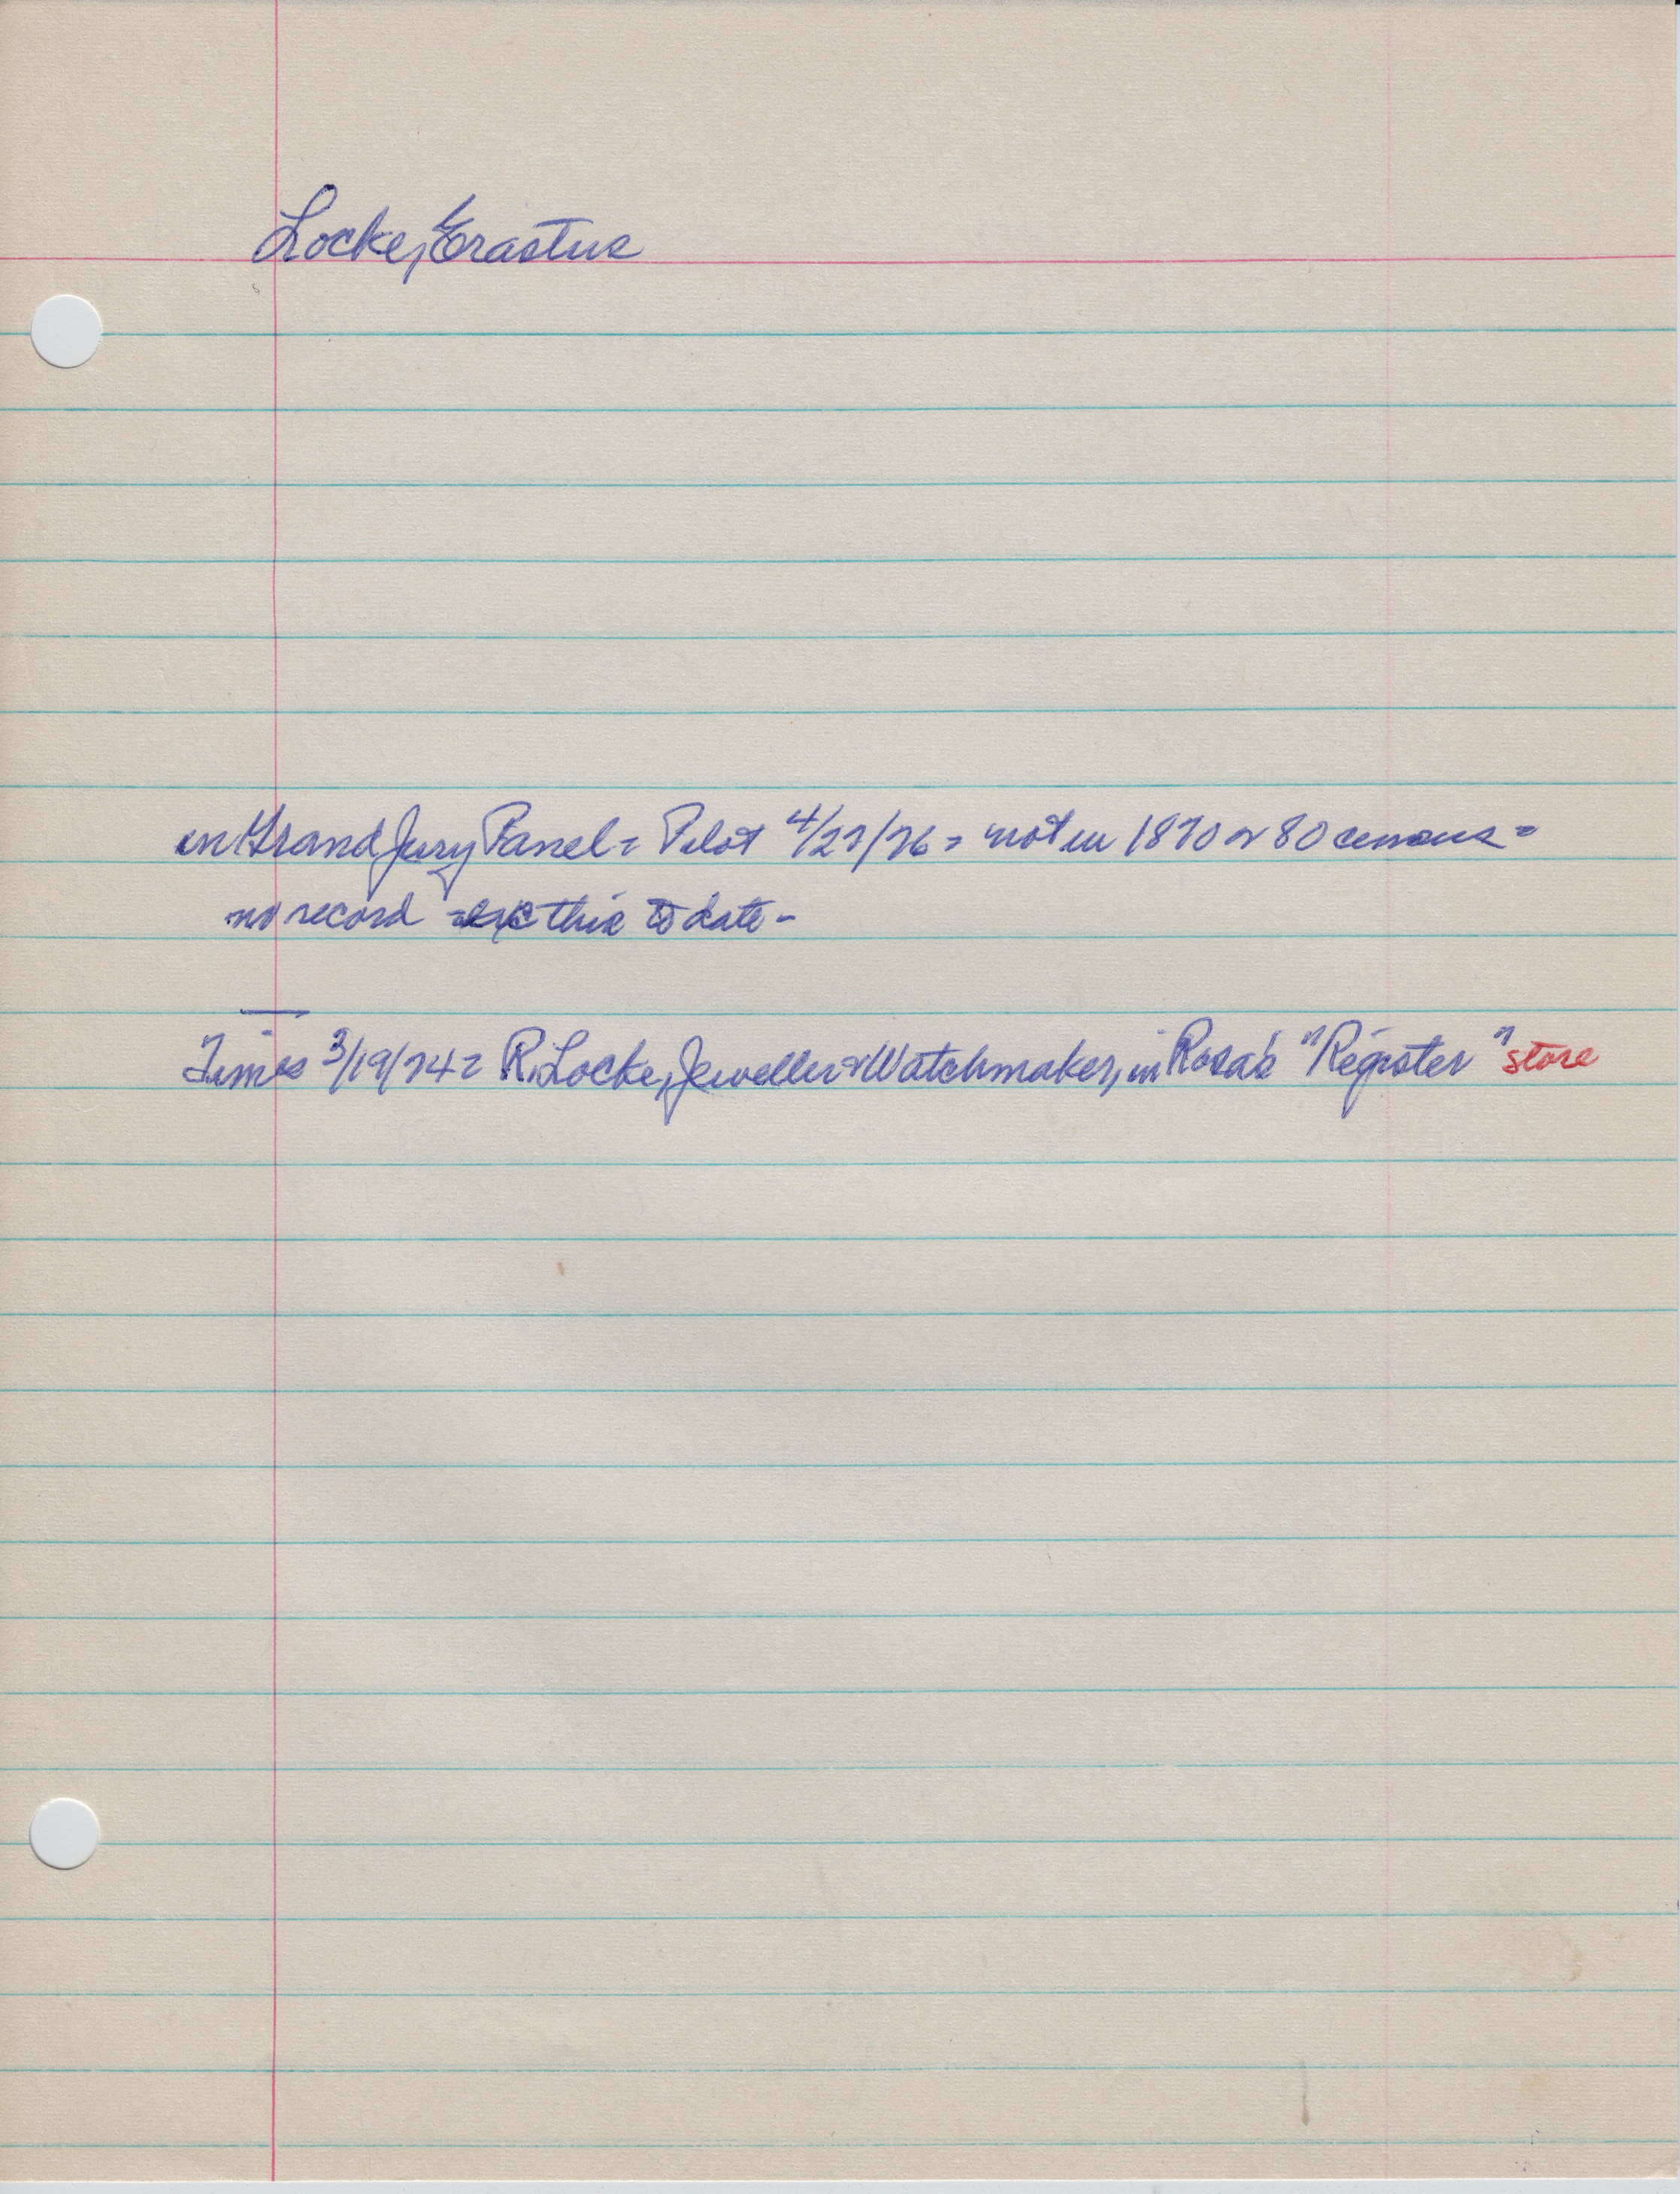 Locke, Erastus
on Grand Jury Panel = Pilot 4/27/76 = not in 1870 or 80 census =
no record exc this to date -
Times 3/19/74 = R. Locke, Jeweller & Watchmaker, in Rosa's "Register" store